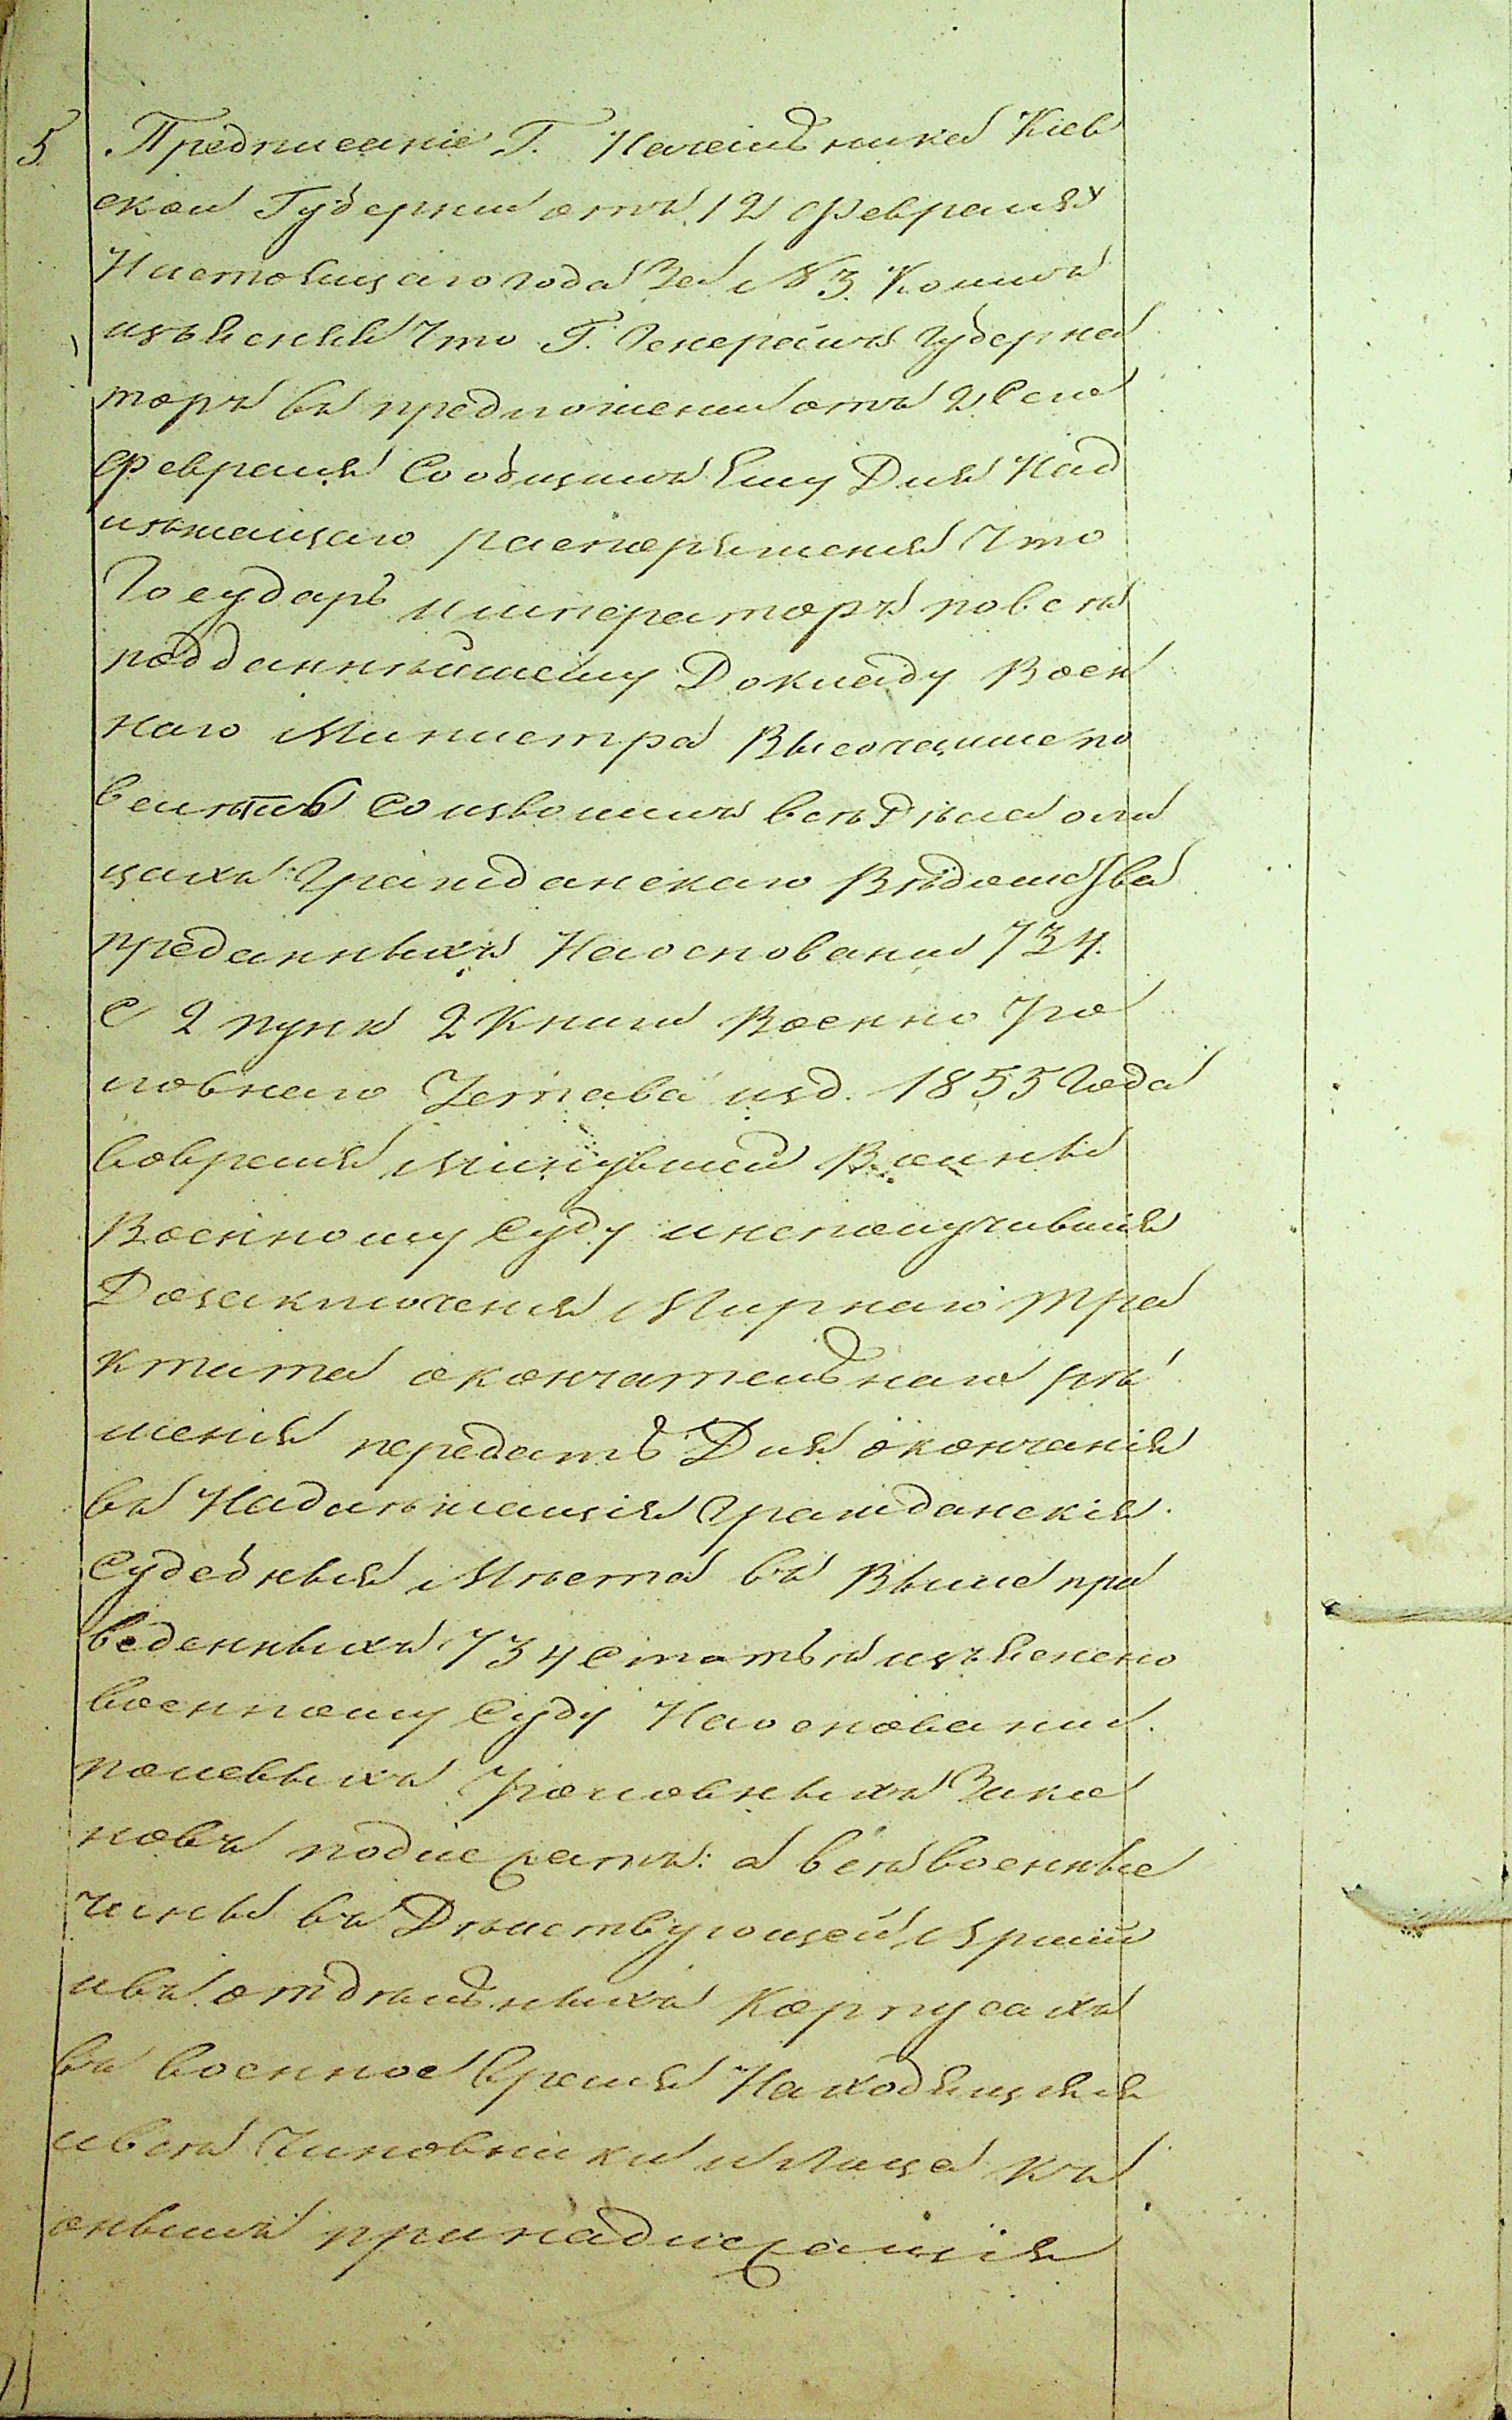 5. Предписаніе Г. Начальника Кіев
скои Губерніи отъ 12 Февраля
Настоящаго года За № 3. Коимъ
изъясняя Что Г. Генералъ Губерна
торъ въ предложеніи отъ 2 Сего
Февраля Сообщилъ Ему Для Над
лежащаго распоряженія Что
Государь императоръ повсе
подданнѣйшему Докладу Воен
наго Министра Высочаише по
велѣть Соизволилъ всѣ Дѣла оли
цахъ Гражданскаго Вѣдомства
преданныхъ Наоснованіи 734.
С 2 пунк 2 Книги Военно Уго
ловнаго Устава изд. 1855 Года
вовремя Минувшей Воины
Военному Суду инеполучившія
Дозаключенія Мирнаго тра
ктата окончательнаго рѣ
шенія передать Для окончанія
въ Надлѣжащія Гражданскія
Судебныя Мѣста въ Выше при
веденныхъ 734 Статьѣ изъяснено
военному Суду Наоснованіи
полевыхъ Уголовныхъ Зако
новъ подлежатъ: а всѣ военные
чины въ Дѣиствующей Арміи
ивъ отдѣльныхъ Корпусахъ
въ военное время Находящіяся
ивсѣ Чиновники и Лица къ
онымъ принадлежащія